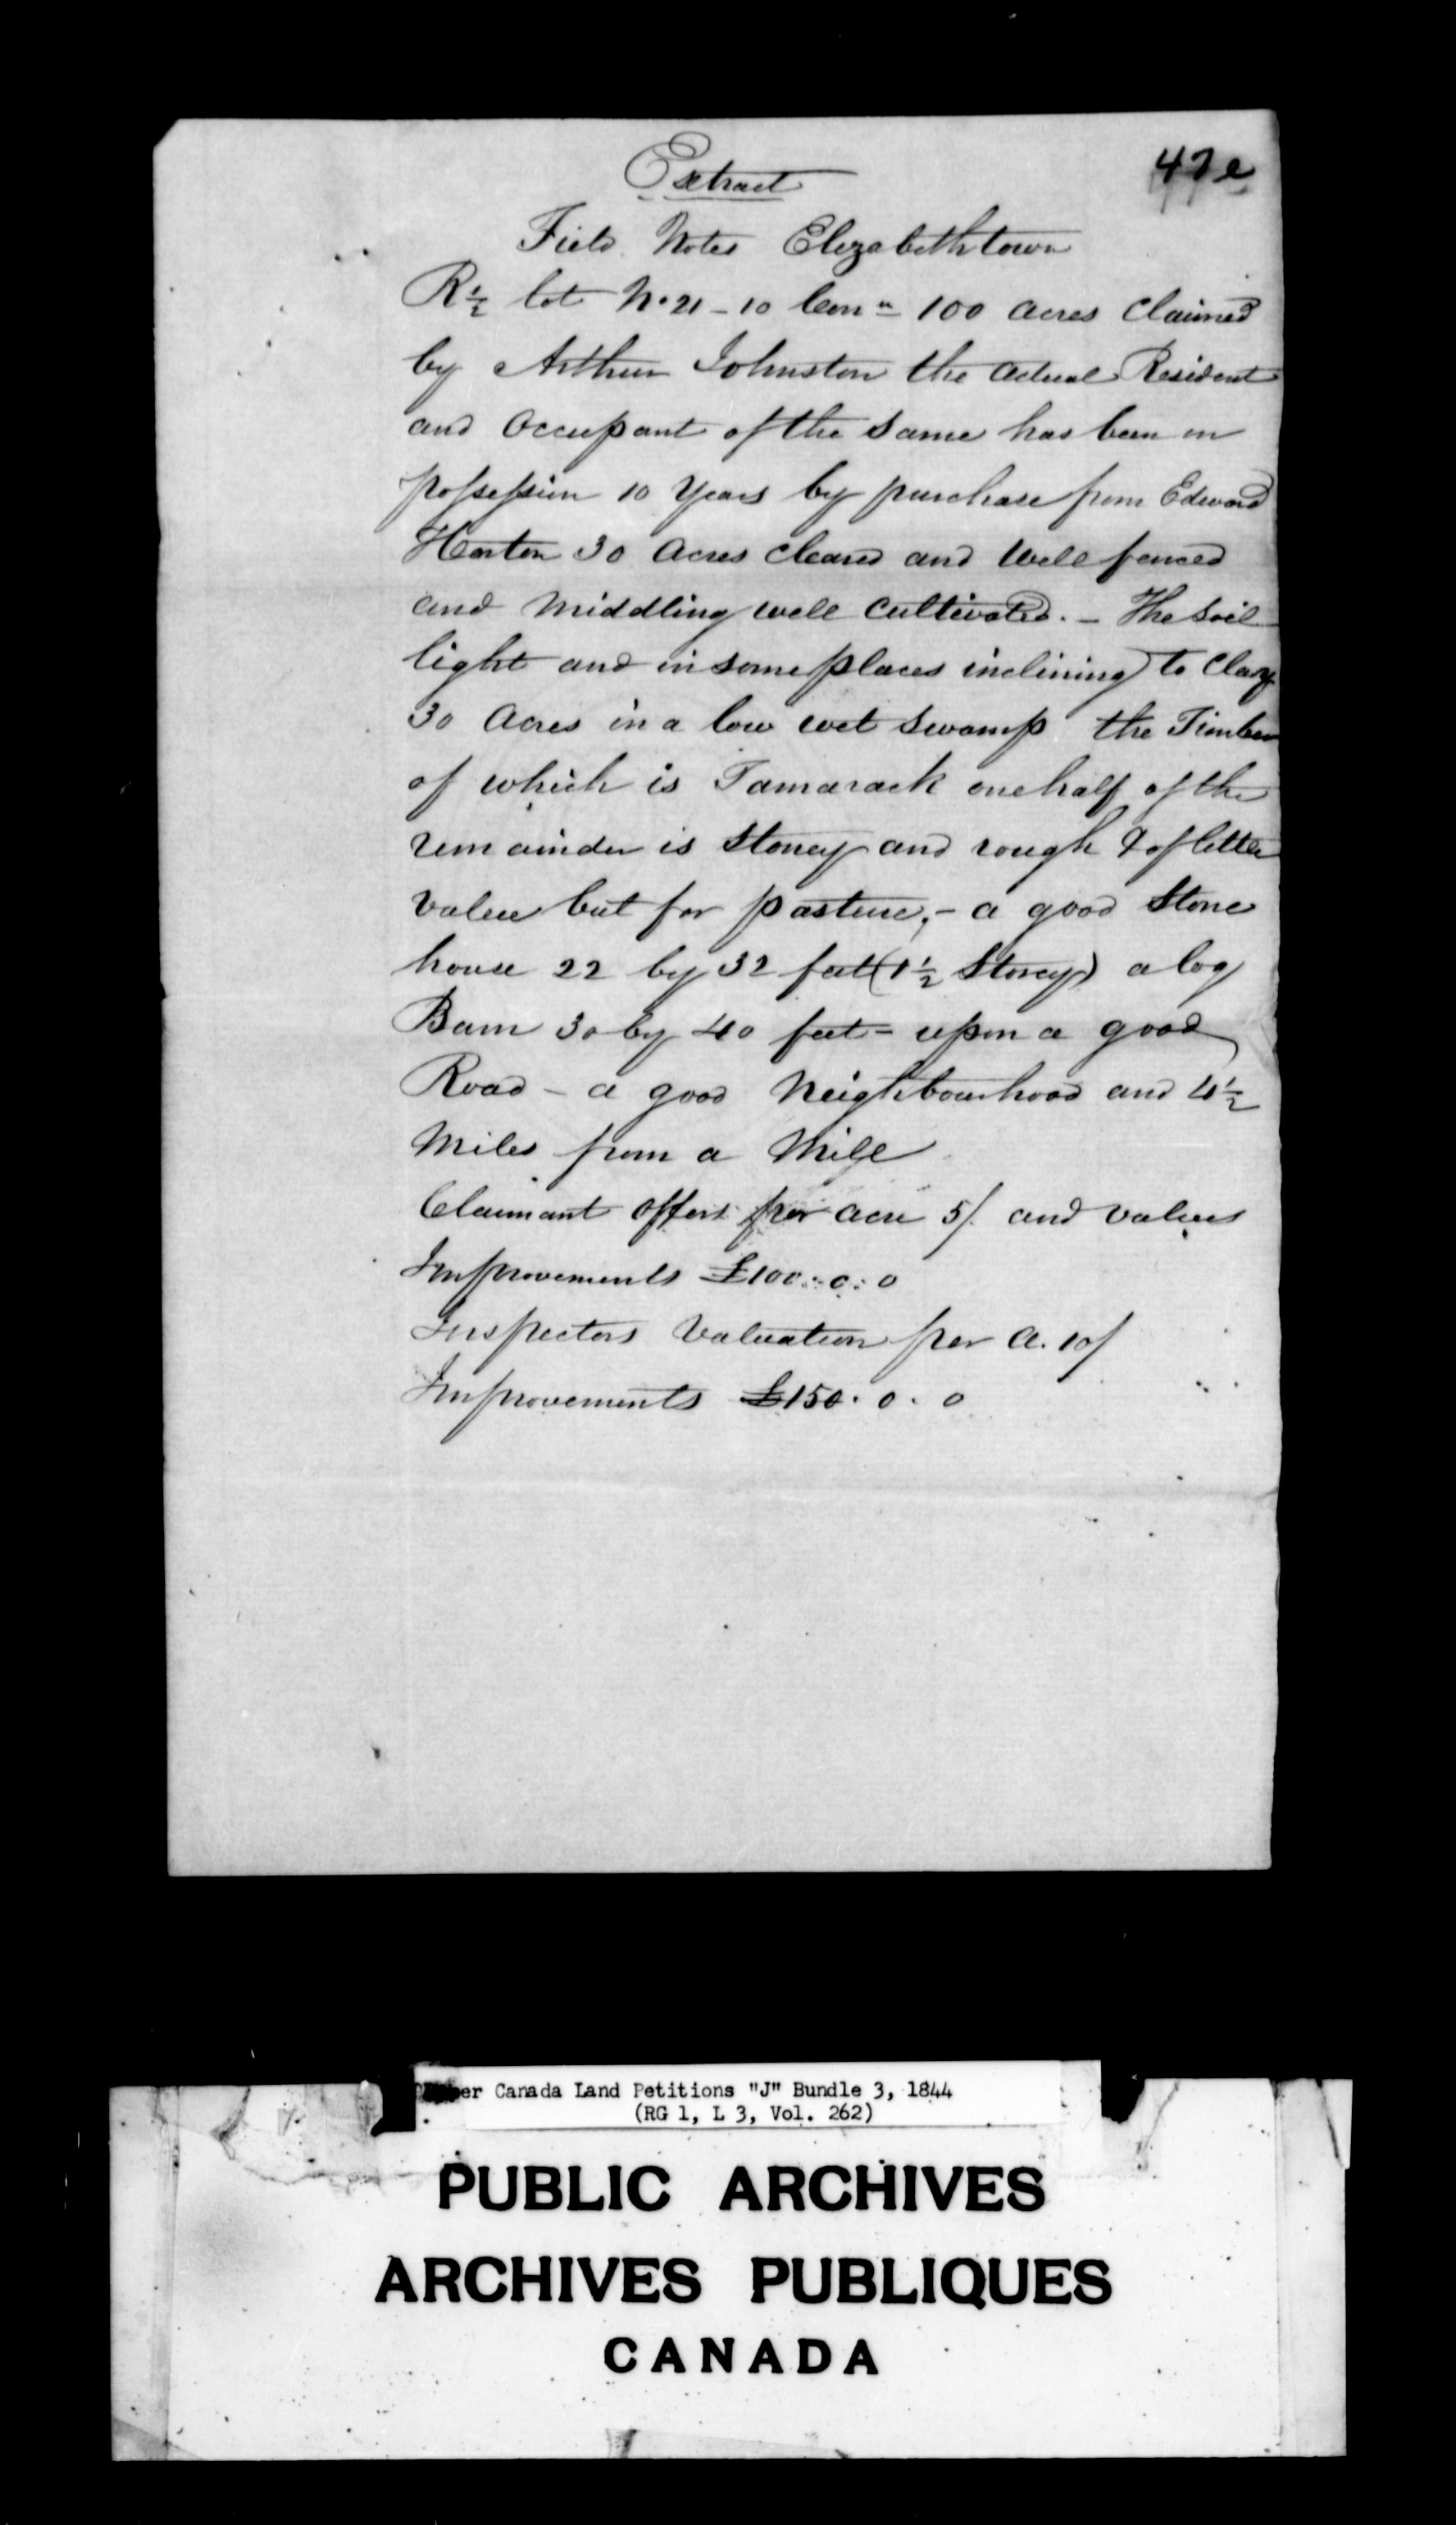 Extract
47e
Field Notes Elizabethtown
R½ lot No 21 - 10 Conn 100 Acres Claimed
by Arthur Johnston the Actual Resident
and Occupant of the Same has been in
possession 10 Years by purchase from Edward
Horton 30 Acres Cleared and Well fenced
and Middling well Cultivated. - The Soil
light and in some places inclining to Clay
30 Acres in a low wet Swamp the Timber
of which is Tamarack one half of the
remainder is Stoney and rough & of little
Value but for pasture, - a good Stone
house 22 by 32 feet (1½ Storey) a log
Barn 30 by 40 feet - upon a good
Road - a good Neighbourhood and 4½
Miles from a Mill
Claimant Offers per Acre 5/. and Values
Improvements £100. 0. 0
Inspectors Valuation per A. 10/
Improvements £150. 0. 0
er Canada Land Petitions "J" Bundle 3, 1844
(RG 1, L 3, Vol. 262)
PUBLIC ARCHIVES
ARCHIVES PUBLIQUES
CANADA